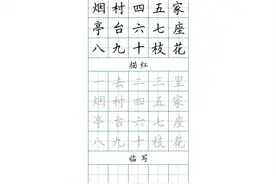 烟村四五家
亭台六七座
八九十枝花
描红
一去二三里
烟村四五家
亭台六七座
八九十枝花
临写